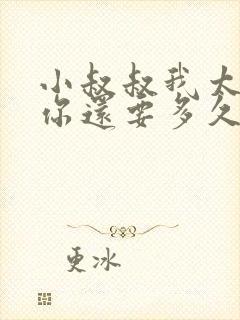 小叔叔我太
你還要多久
更冰